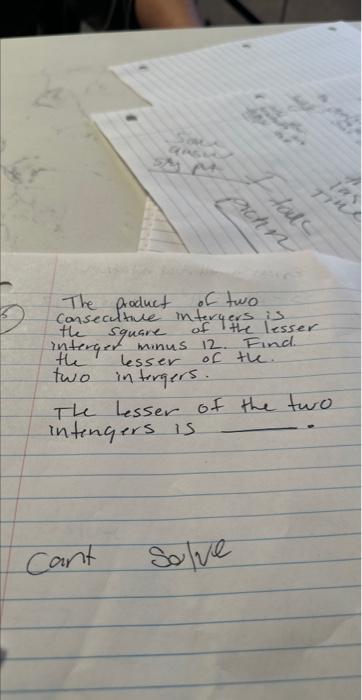 Some
answ
I take
The product of two
consecutive intergers is
the square of the lesser
interger minus 12. Find
the lesser of the.
two intergers.
The lesser of the two
intengers is ______.
Cant Solve